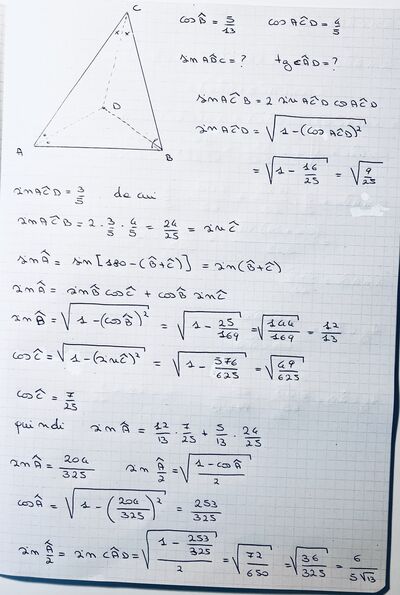 C
x x
D
A
B
cos B̂ = 5/13   cos AĈD = 4/5
sin AB̂C = ?   tg CÂD = ?
sin AĈB = 2 sin AĈD cos AĈD
sin AĈD = √(1-(cos AĈD)²)
= √(1 - 16/25) = √(9/25)
sin AĈD = 3/5   da cui
sin AĈB = 2 · 3/5 · 4/5 = 24/25 = sin Ĉ
sin Â = sin [180-(B̂+Ĉ)] = sin(B̂+Ĉ)
sin Â = sin B̂ cos Ĉ + cos B̂ sin Ĉ
sin B̂ = √(1-(cos B̂)²) = √(1 - 25/169) = √(144/169) = 12/13
cos Ĉ = √(1-(sin Ĉ)²) = √(1 - 576/625) = √(49/625)
cos Ĉ = 7/25
quindi   sin Â = 12/13 · 7/25 + 5/13 · 24/25
sin Â = 204/325   sin Â/2 = √((1-cos Â)/2)
cos Â = √(1 - (204/325)²) = 253/325
sin Â/2 = sin CÂD = √((1 - 253/325)/2) = √(72/650) = √(36/325) = 6/(5√13)